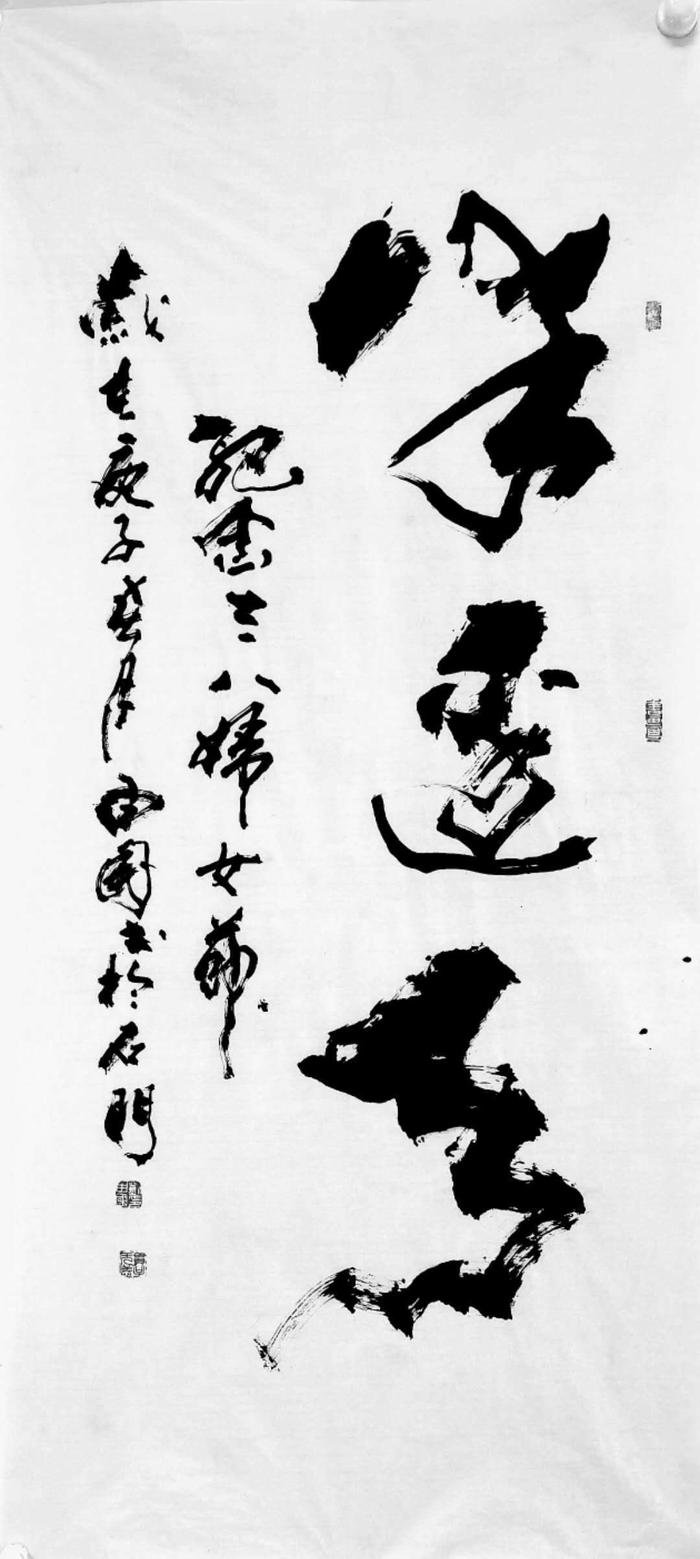 半邊天
紀念三八婦女節
歲在庚子春月 國書於石門